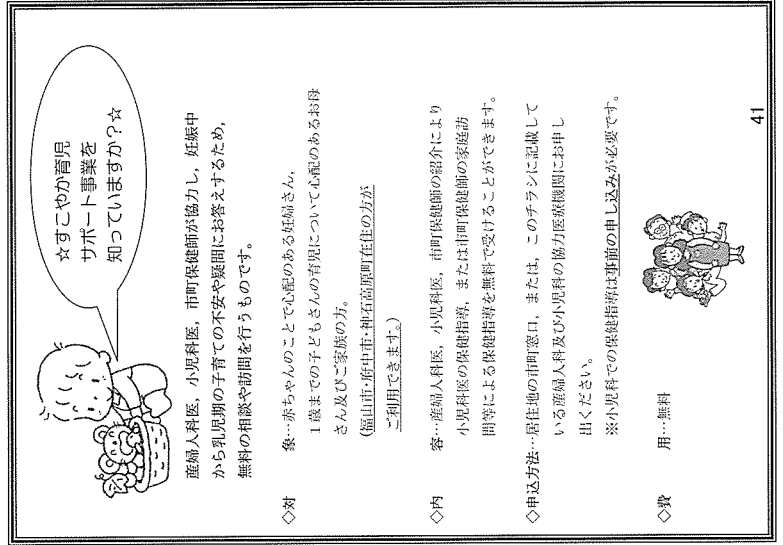 ☆すこやか育児
サポート事業を
知っていますか？☆
産婦人科医，小児科医，市町保健師が協力し，妊娠中
から乳児期の子育ての不安や疑問にお答えするため，
無料の相談や訪問を行うものです。
◇対　　象…赤ちゃんのことで心配のある妊婦さん，
１歳までの子どもさんの育児について心配のあるお母
さん及びご家族の方。
(福山市・府中市・神石高原町在住の方が
ご利用できます。)
◇内　　容…産婦人科医，小児科医，市町保健師の紹介により
小児科医の保健指導，または市町保健師の家庭訪
問等による保健指導を無料で受けることができます。
◇申込方法…居住地の市町窓口，または，このチラシに記載して
いる産婦人科及び小児科の協力医療機関にお申し
出ください。
※小児科での保健指導は事前の申し込みが必要です。
◇費　　用…無料
41